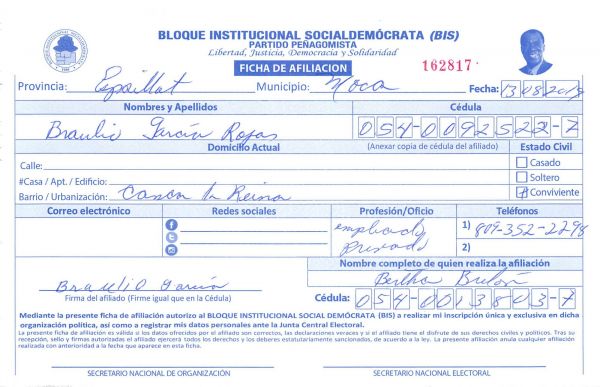 BLOQUE INSTITUCIONAL SOCIALDEMÓCRATA (BIS)
PARTIDO PEÑAGOMISTA
Libertad, Justicia, Democracia y Solidaridad
FICHA DE AFILIACION
162817
Provincia: Espaillat Municipio: Moca Fecha: 13 08 2019
Nombres y Apellidos Cédula
Braulio García Rojas 054-0092522-7
Domicilio Actual (Anexar copia de cédula del afiliado) Estado Civil
Calle: Casado
#Casa / Apt. / Edificio: Soltero
Barrio / Urbanización: La Reina Conviviente
Correo electrónico Redes sociales Profesión/Oficio Teléfonos
empleado 1) 809-352-2298
privado 2)
Nombre completo de quien realiza la afiliación
Braulio García Bertha
Firma del afiliado (Firme igual que en la Cédula) Cédula: 054-0013803-7
Mediante la presente ficha de afiliación autorizo al BLOQUE INSTITUCIONAL SOCIAL DEMÓCRATA (BIS) a realizar mi inscripción única y exclusiva en dicha
organización política, así como a registrar mis datos personales ante la Junta Central Electoral.
La presente ficha de afiliación es válida si los datos ofrecidos por el afiliado son correctos, las declaraciones veraces y si el titular tiene el disfrute de sus derechos civiles y políticos. Tras su
recepción, sello y firmas autorizadas el afiliado ejercerá todos los derechos y los deberes estatutariamente sancionados, de acuerdo a la ley. La presente afiliación anula cualquier afiliación
realizada con anterioridad a la fecha que aparece en esta ficha.
SECRETARIO NACIONAL DE ORGANIZACIÓN SECRETARIO NACIONAL ELECTORAL